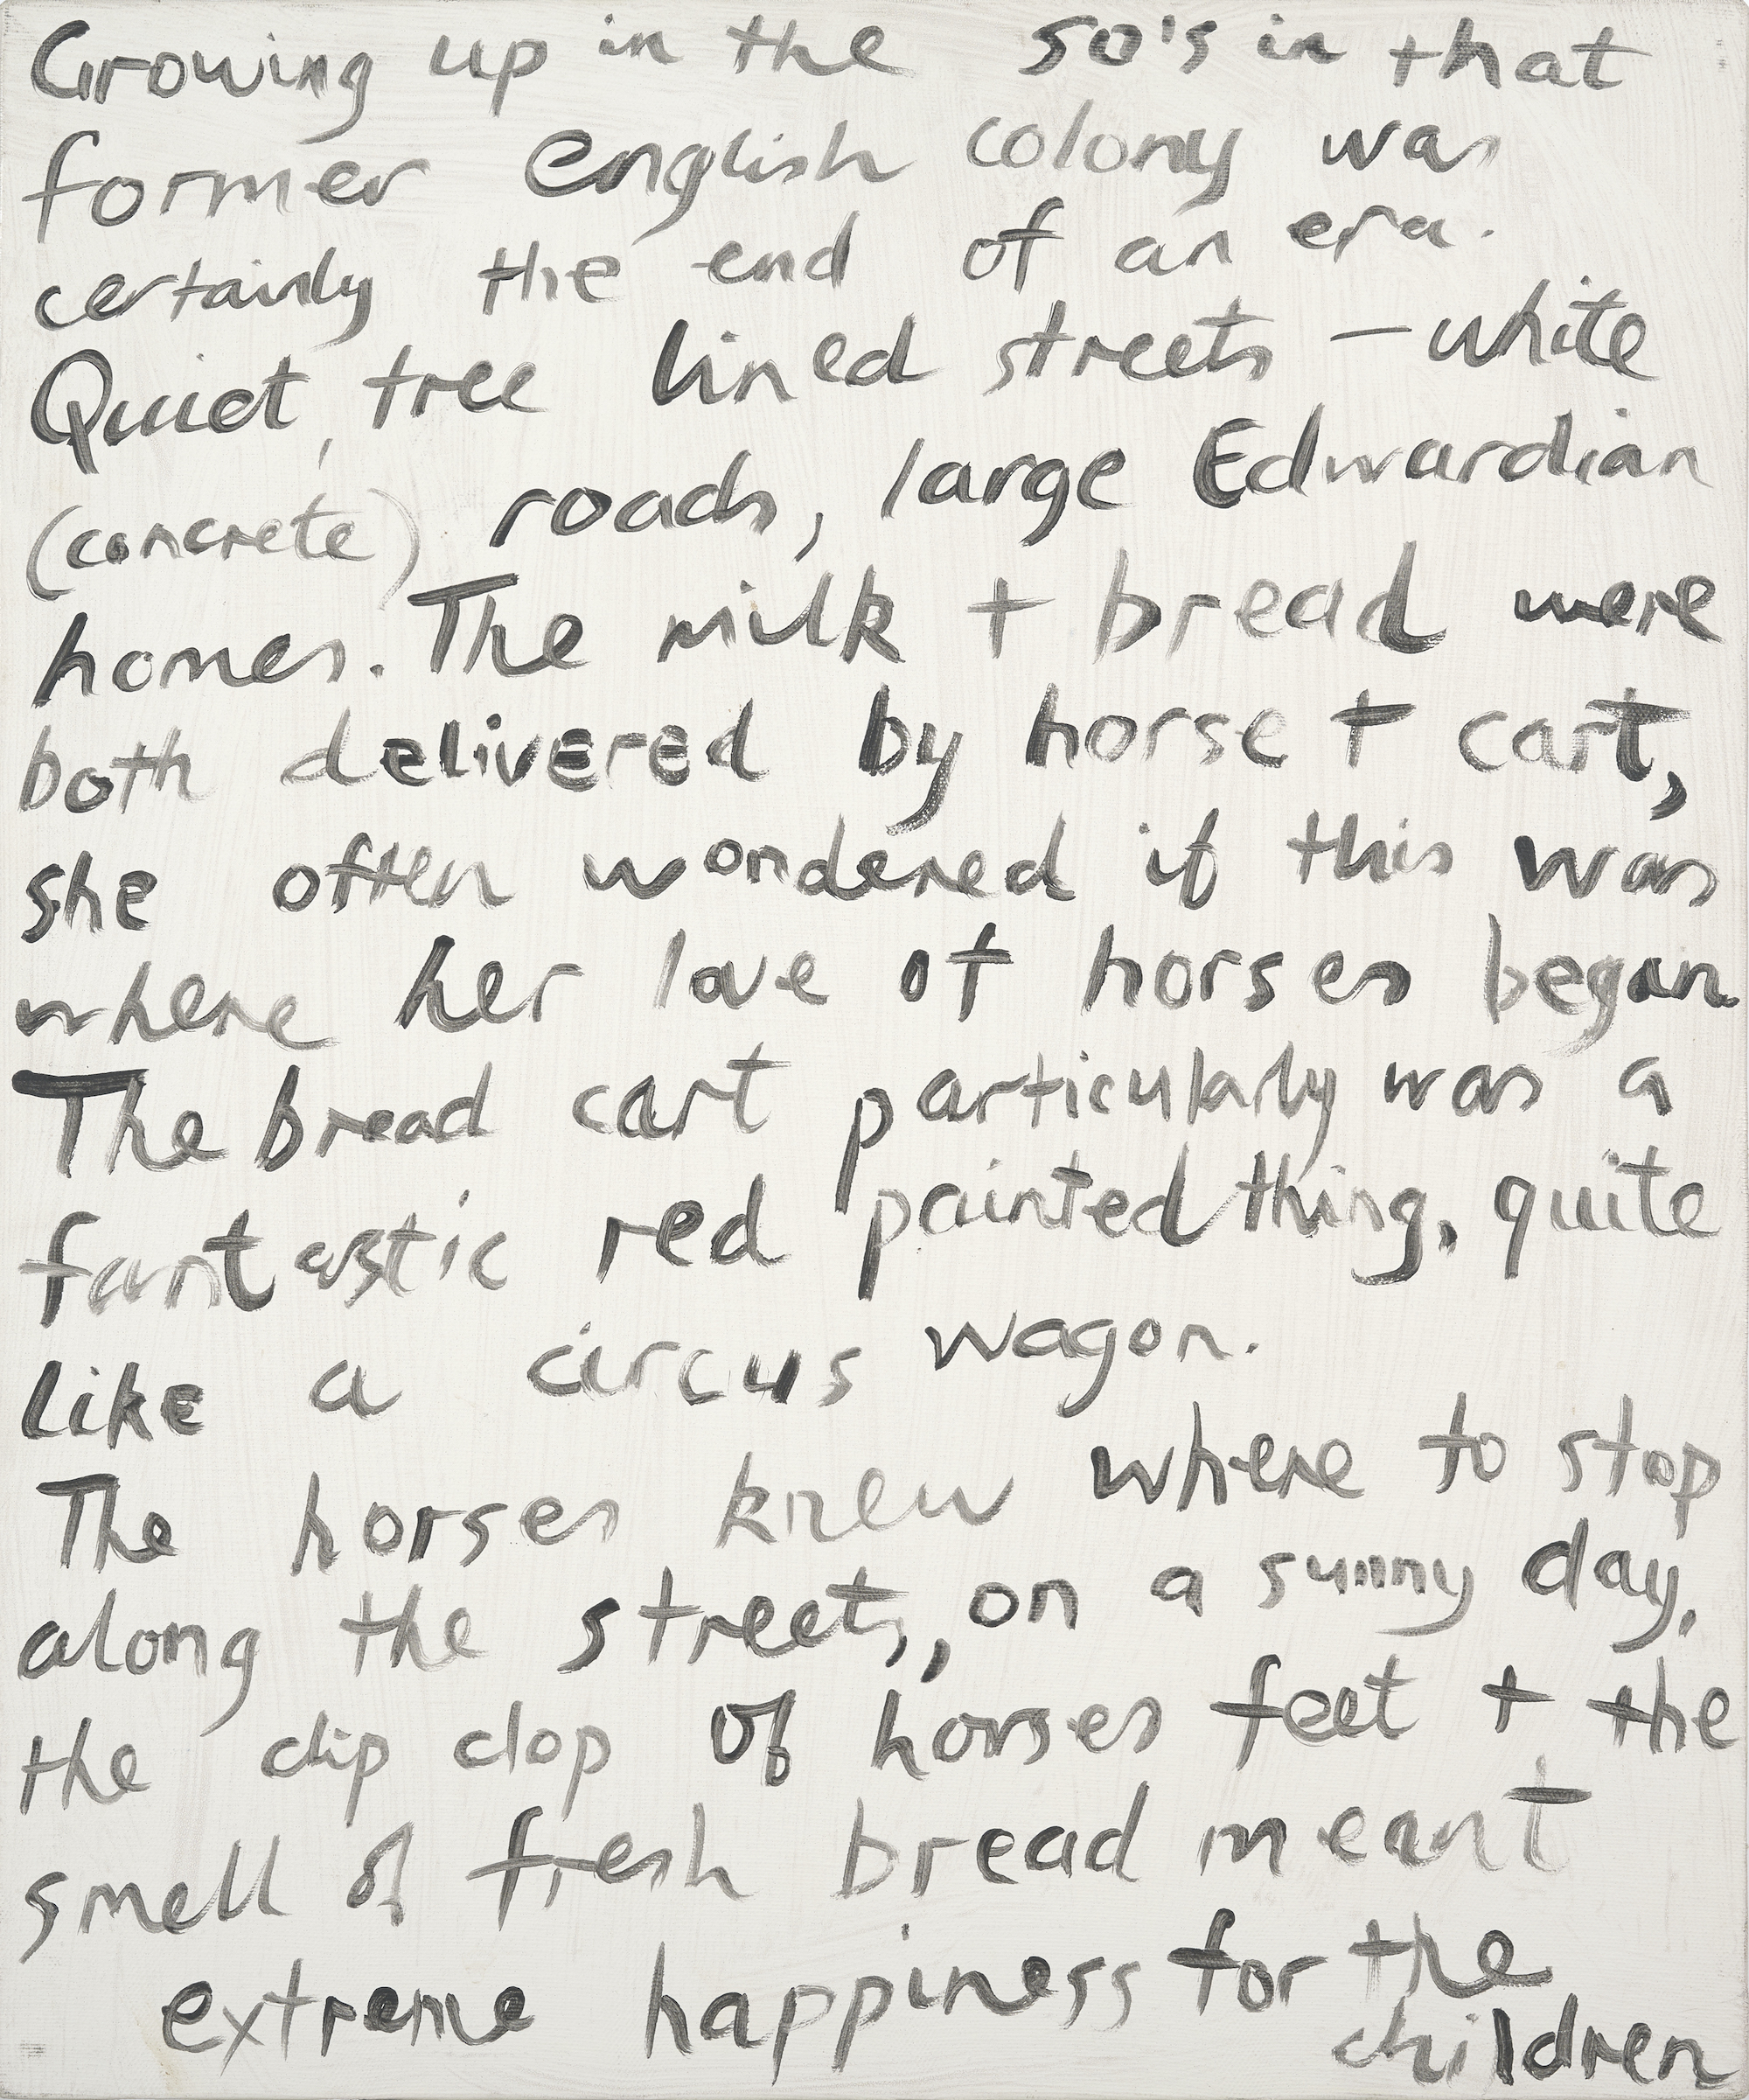 Growing up in the 50's in that
former English colony was
certainly the end of an era.
Quiet, tree lined streets – white
(concrete) roads, large Edwardian
homes. The milk + bread were
both delivered by horse + cart,
she often wondered if this was
where her love of horses began.
The bread cart particularly was a
fantastic red painted thing, quite
like a circus wagon.
The horses knew where to stop
along the streets, on a sunny day,
the clip clop of horses feet + the
smell of fresh bread meant
extreme happiness for the
children